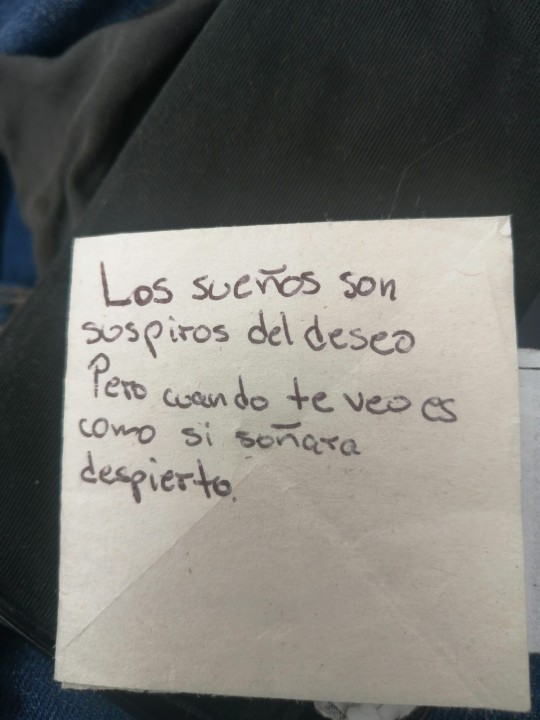 Los sueños son
suspiros del deseo
Pero cuando te veo es
como si soñara
despierto.